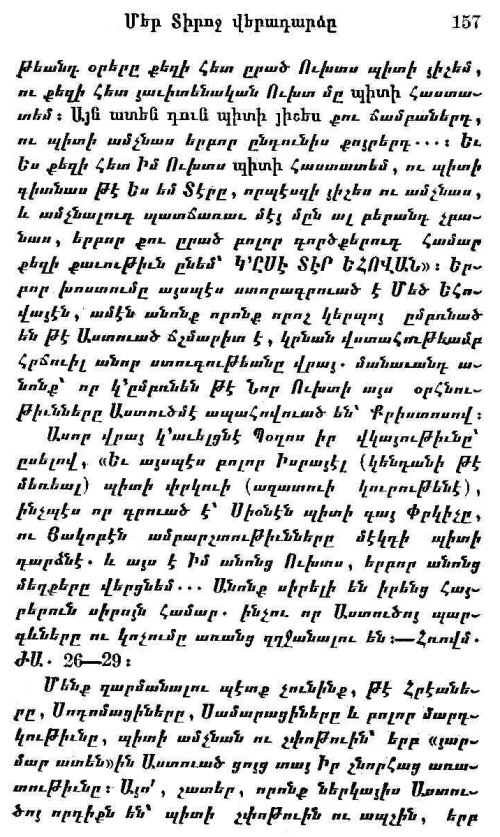 Մեր Տիրոջ վերադարձը 157
թեանդ օրերը քեզի հետ ըրած Ուխտս պիտի յիշեմ,
ու քեզի հետ յաւիտենական Ուխտ մը պիտի հաստա-
տեմ: Այն ատեն դուն պիտի յիշես քու ճամբաներդ,
ու պիտի ամչնաս երբոր ընդունիս քոյրերդ...: Եւ
Ես քեզի հետ Իմ Ուխտս պիտի հաստատեմ, ու պիտի
գիտնաս թէ Ես եմ Տէրը, որպէսզի յիշես ու ամչնաս,
և ամչնալուդ պատճառաւ մէյ մըն ալ բերանդ չբա-
նաս, երբոր քու ըրած բոլոր գործքերուդ համար
քեզի քաւութիւն ընեմ՝ Կ՚ԸՍԷ ՏԷՐ ԵՀՈՎԱՆ»: Եր-
բոր խոստումը այսպէս ստորագրուած է Մեծ Եհո-
վայէն, ամէն անոնք որոնք որոշ կերպով ըմբռնած
են թէ Աստուած ճշմարիտ է, կրնան վստահութեամբ
հրճուիլ անոր ստուգութեանը վրայ. մանաւանդ ա-
նոնք՝ որ կ՚ըմբռնեն թէ Նոր Ուխտի այս օրհնու-
թիւնները Աստուծմէ ապահովուած են՝ Քրիստոսով:
Ասոր վրայ կ՚աւելցնէ Պօղոս իր վկայութիւնը՝
ըսելով, «Եւ այսպէս բոլոր Իսրայէլ (կենդանի թէ
մեռեալ) պիտի փրկուի (ազատուի կուրութենէ),
ինչպէս որ գրուած է՝ Սիօնէն պիտի գայ Փրկիչը,
ու Յակոբէն ամբարշտութիւնները մէկդի պիտի
դարձնէ. և այս է Իմ անոնց Ուխտս, երբոր անոնց
մեղքերը վերցնեմ... Անոնք սիրելի են իրենց հայ-
րերուն սիրոյն համար. ինչու որ Աստուծոյ պար-
գևները ու կոչումը առանց զղջանալու են:—Հռովմ.
ԺԱ. 26—29:
Մենք զարմանալու պէտք չունինք, թէ Հրէանե-
րը, Սոդոմացիները, Սամարացիները և բոլոր մարդ-
կութիւնը, պիտի ամչնան ու շփոթուին՝ երբ «յար-
մար ատեն»ին Աստուած ցոյց տայ Իր շնորհաց առա-
տութիւնը: Այո՛, շատեր, որոնք ներկայիս Աստու-
ծոյ որդիքն են՝ պիտի շփոթուին ու ապշին, երբ